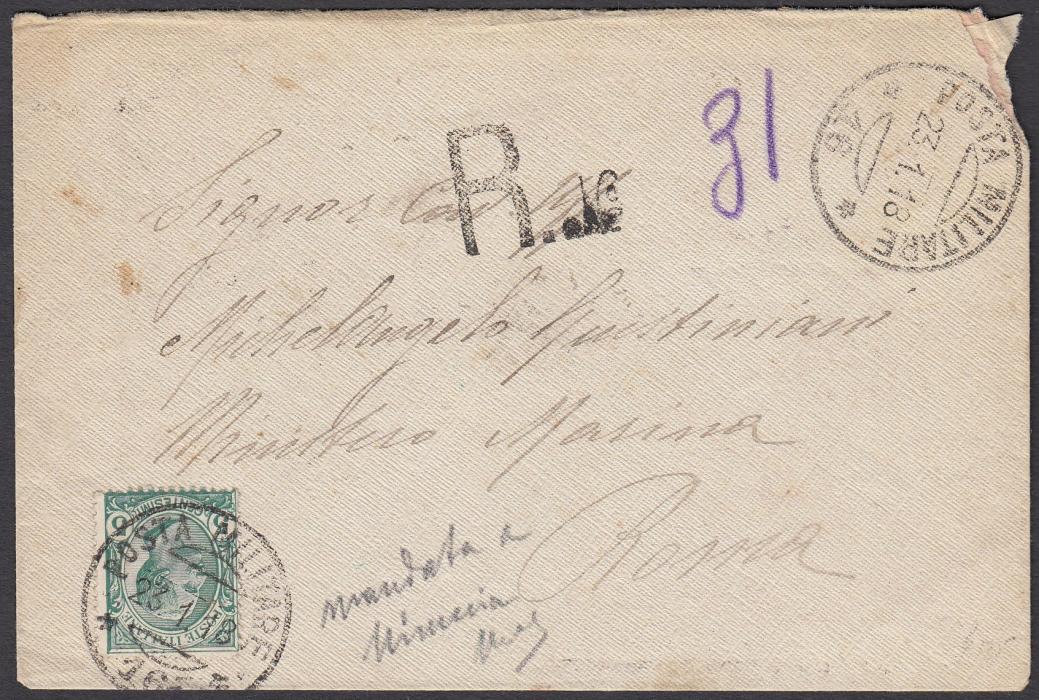 31
POSTA MILITARE
23.1.18
* 46 *
R.
Signor Cav
Michelangelo Giustiniani
Ministero Marina
Roma
5 CENTESIMI 5
POSTE ITALIANE
POSTA MILITARE
23 1 18
mandata a